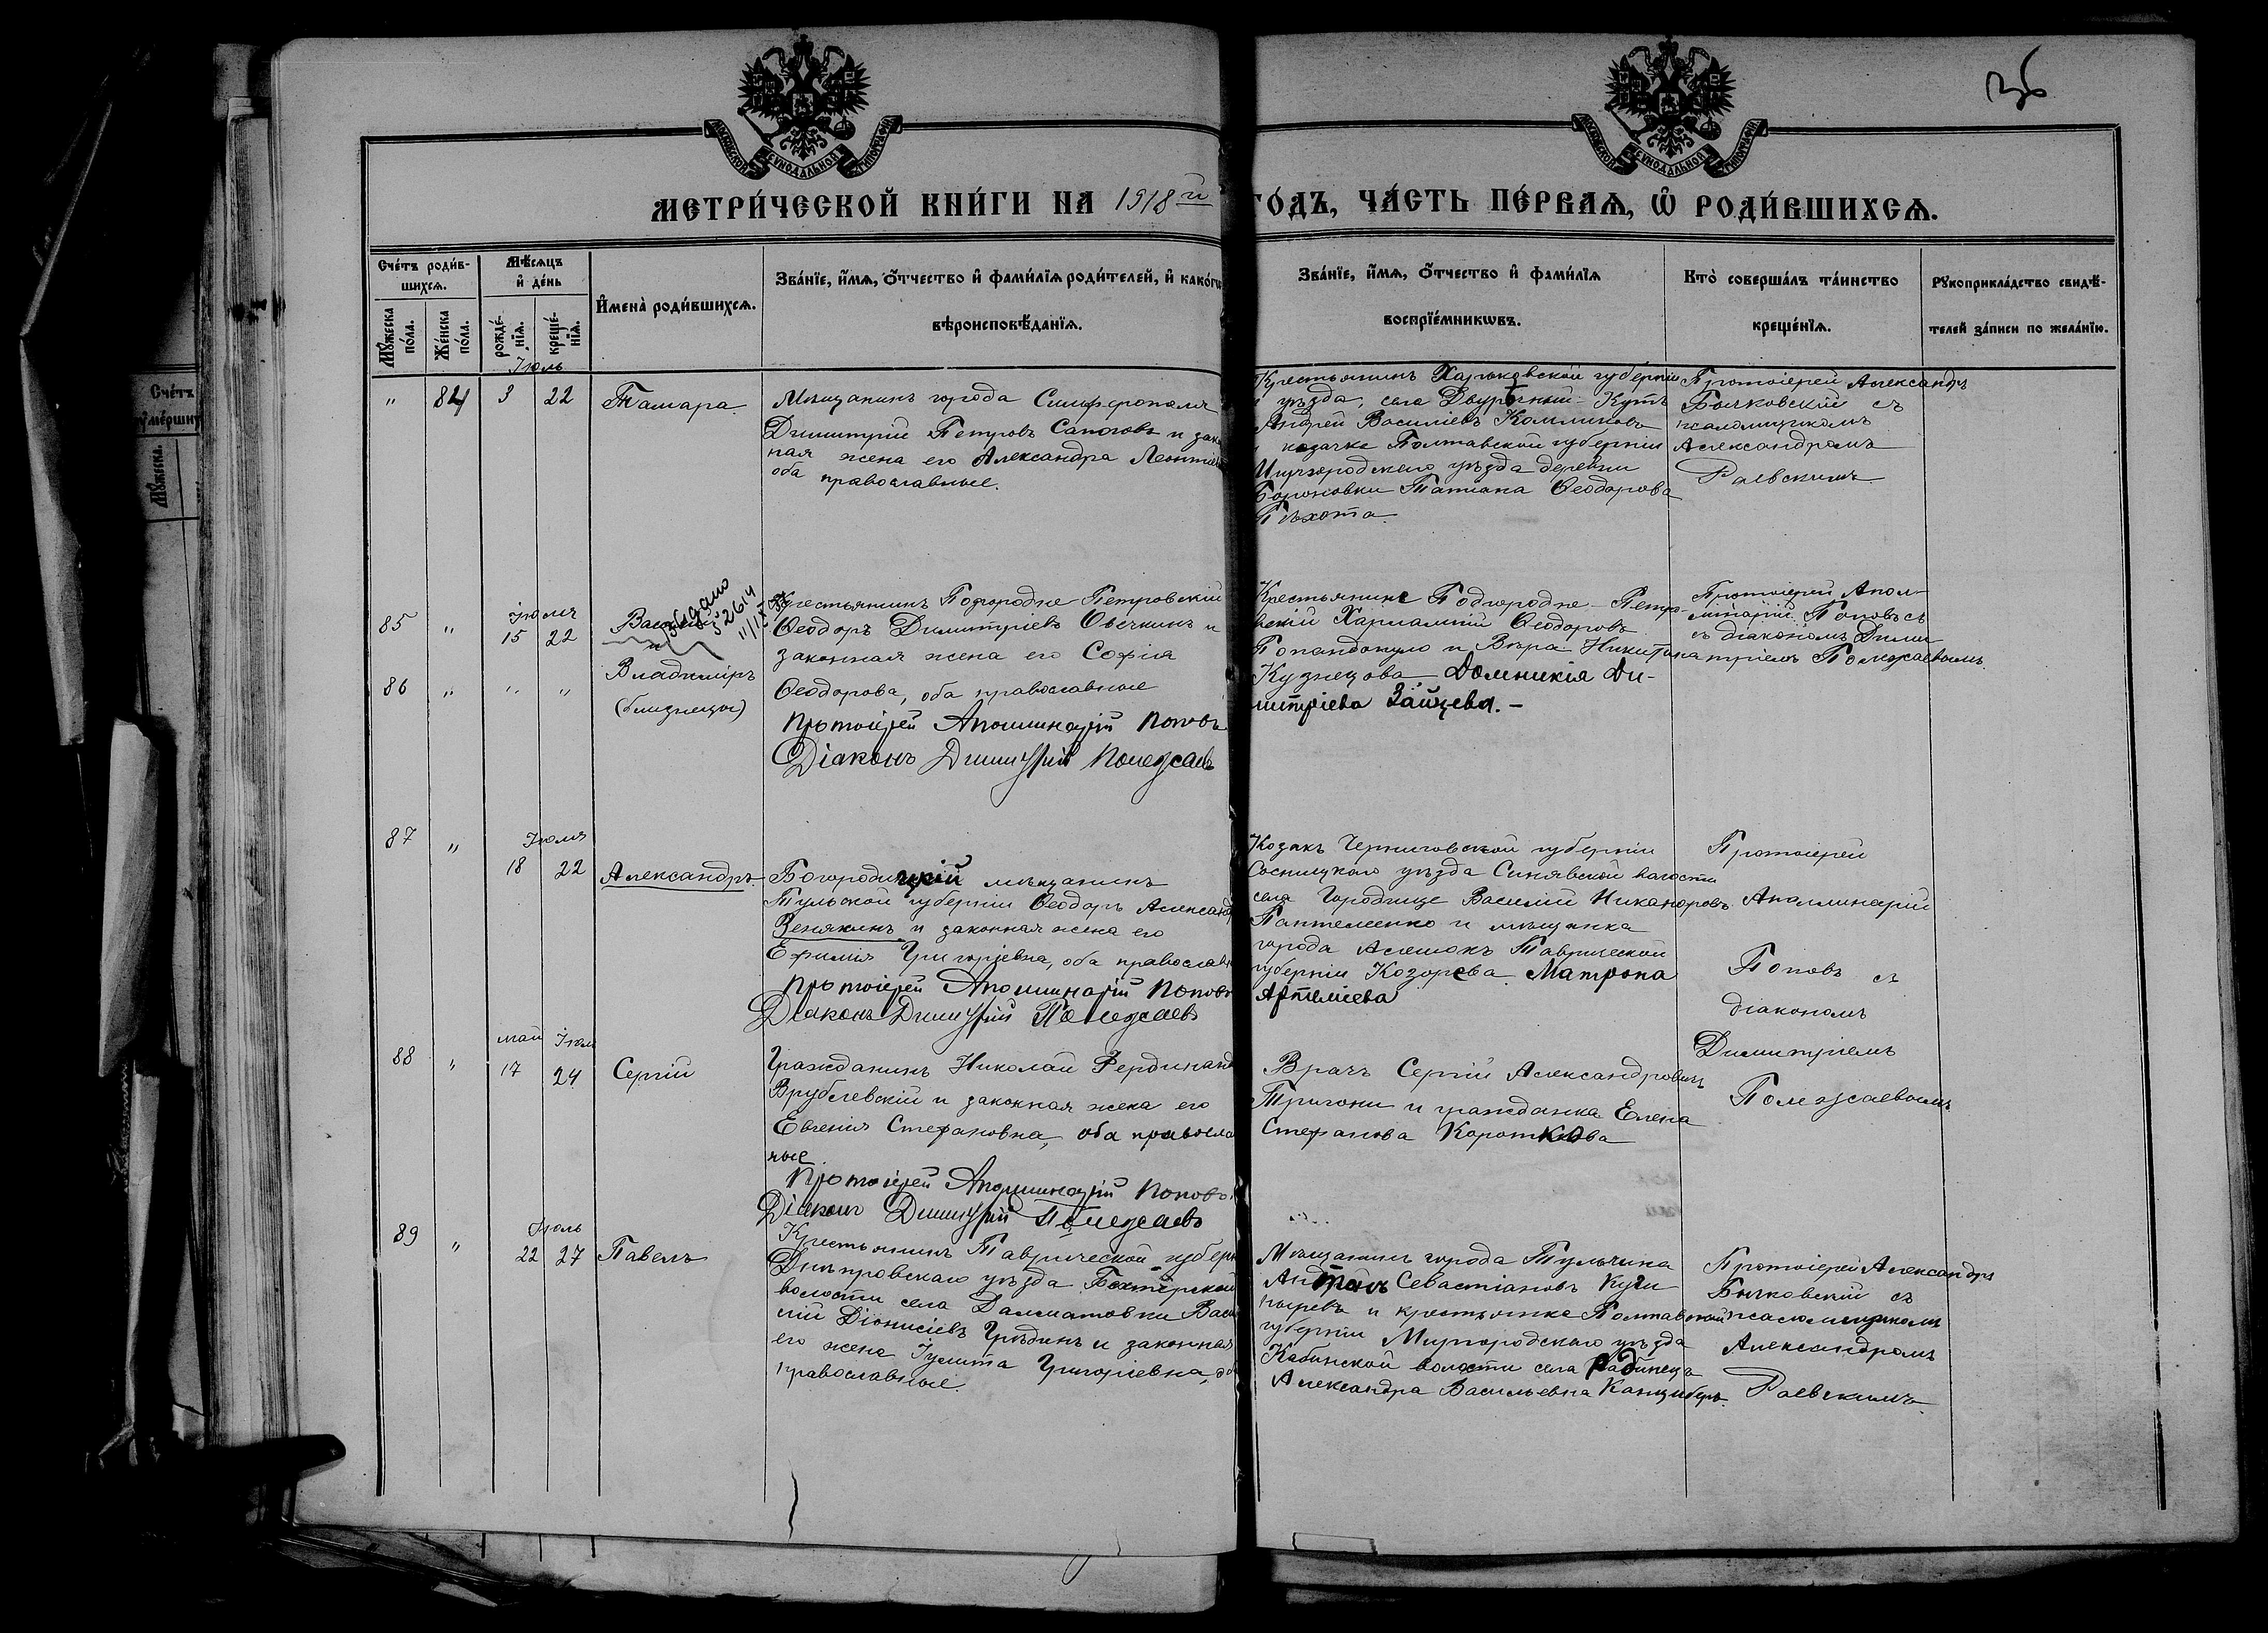 36
МОСКОВСКОЙ СѴНОДАЛЬНОЙ ТИПОГРАФІИ
МОСКОВСКОЙ СѴНОДАЛЬНОЙ ТИПОГРАФІИ
МЕТРИ́ЧЕСКОЙ КНИ́ГИ НА 1918 й ГО́ДЪ, ЧА́СТЬ ПЕ́РВАѦ, Ѡ҆ РОДИ́ВШИХСѦ.
Сче́тъ роди́в-
шихсѧ.
Мꙋ́жеска по́ла.
Же́нска по́ла.
Мѣ́сѧцъ
и҆ де́нь
рожде́-
нїѧ.
креще́-
нїѧ.
И҆мена̀ роди́вшихсѧ.
Зва́нїе, и҆́мѧ, ѻ҆́тчество и҆ фами́лїѧ роди́телей, и҆ како́гѡ
вѣроисповѣ́данїѧ.
Зва́нїе, и҆́мѧ, ѻ҆́тчество и҆ фами́лїѧ
воспрїе́мникѡвъ.
Кто̀ соверша́лъ та́инство
креще́нїѧ.
Рꙋкоприкла́дство свидѣ́-
телей за́писи по жела́нїю.
Іюль
" 84 3 22 Тамара.
Мѣщанинъ города Симферополя
Димитрій Петровъ Сапоговъ и зако
ная жена его Александра Леонтіе
оба православные.
Крестьянинъ Харьковской губерніи
уѣзда, села Двурѣчный-Кутъ
Андрей Василіевъ
и козачка Полтавской губерніи
Миргородскаго уѣзда деревни
Татіана Ѳеодорова
Пѣхота.
Протоіерей Александръ
Бычковскій съ
псаломщикомъ
Александромъ
Раевскимъ
85 " Іюля
15 22 Василій
и
Выдано
№ 2614
Владиміръ
86 " " "
(близнецы)
Крестьянинъ Подгородне-Петровскій
Ѳеодоръ Димитріевъ Овечкинъ и
законная жена его Софія
Ѳеодорова, оба православные
Протоіерей Аполлинарій Поповъ
Діаконъ Димитрій Полежаевъ
Крестьянинъ Подгородне-Петро-
вскій Харлампій Ѳеодоровъ
Попандопуло и Вѣра Никитина
Кузнецова. Домникія Ди-
митріева Зайцева. -
Протоіерей Апол-
линарій Поповъ съ
съ діакономъ Дими
тріемъ Полежаевымъ.
87 " Іюля
18 22 Александръ.
Богородицкій мѣщанинъ
Тульской губерніи Ѳеодоръ Александр
Венякинъ и законная жена его
Ефимія Григоріевна, оба православн
Протоіерей Аполлинарій Поповъ
Діаконъ Димитрій Полежаевъ
Козакъ Черниговской губерніи
Сосницкаго уѣзда Синявской волости
села Городище Василій Никаноровъ
Пантелеенко и мѣщанка
города Алешокъ Таврической
губерніи Козорева Матрона
Артеміева
Протоіерей
Аполлинарій
Поповъ съ
діакономъ
Димитріемъ
Полежаевымъ
май Іюль
88 " 17 24 Сергій
Гражданинъ Николай Фердинанд
Врублевскій и законная жена его
Евгенія Стефановна, оба правосла
ные
Протоіерей Аполлинарій Поповъ
Діаконъ Димитрій Полежаевъ
Врачъ Сергій Александровичъ
Тригони и гражданка Елена
Стефанова Короткова
Іюль
89 " 22 27 Павелъ
Крестьянинъ Таврической губерн
Днѣпровскаго уѣзда Бехтерской
волости села Далматовки Васи
лій Діонисіевъ Грѣдинъ и законная
его жена Іулита Григоріевна, об
православные.
Мѣщанинъ города Тульчина
Севастіановъ
и крестьянка Полтавской
губерніи Миргородскаго уѣзда
волости села
Александра Васильевна Канциберъ.
Протоіерей Александръ
Бычковскій съ
псаломщикомъ
Александромъ
Раевскимъ.
Сче́тъ
ᲂу҆ме́рших
Мꙋ́жеска.